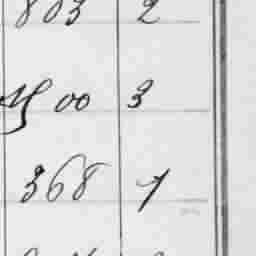 803 2
500 3
368 7